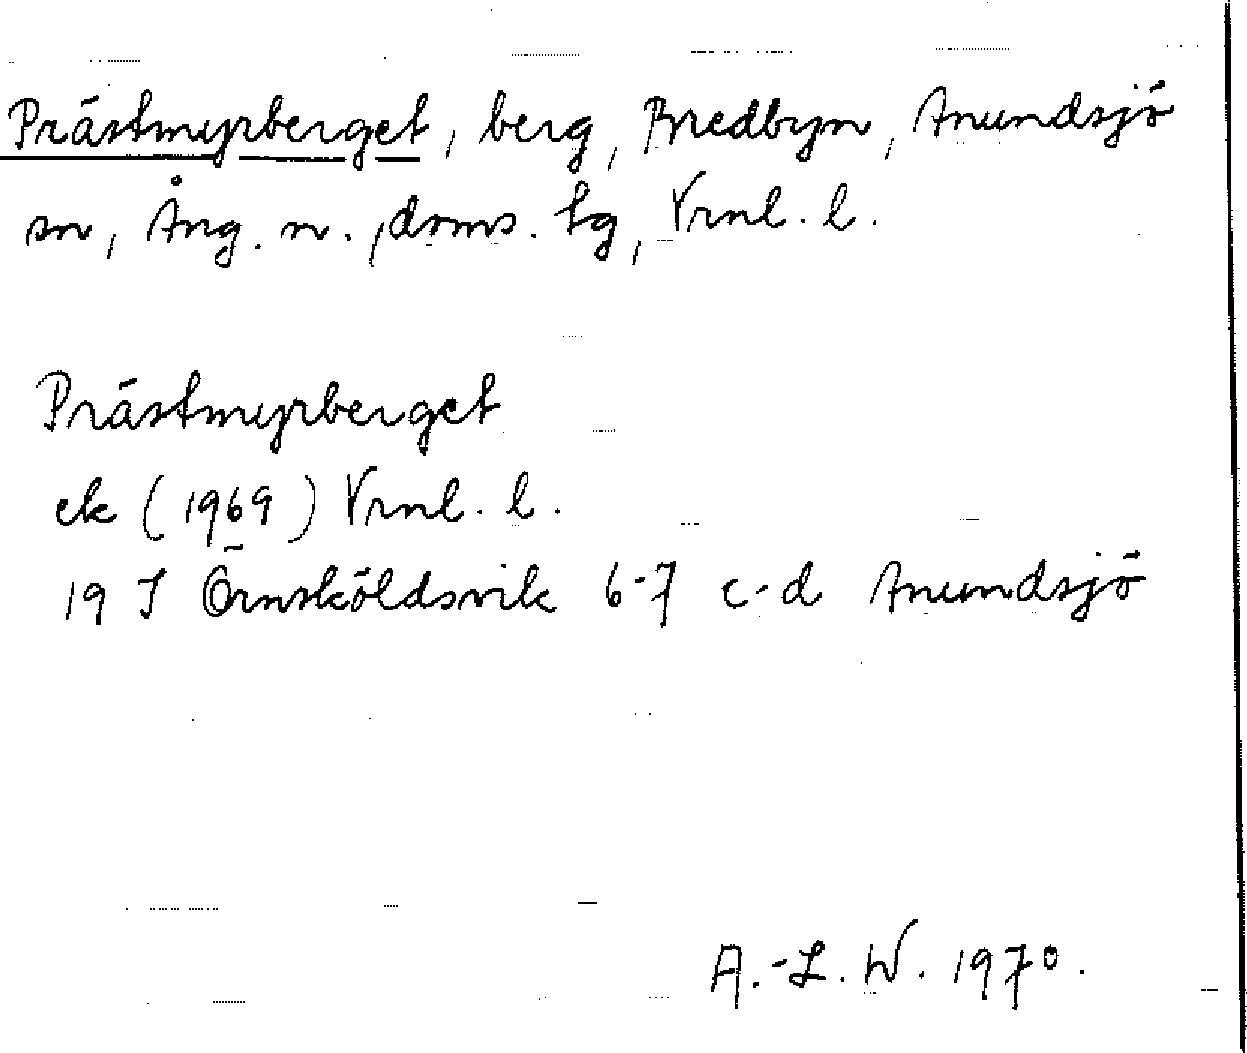 Prästmyrberget, berg, Bredbyn, Anundsjö
sn, Ång. n., doms. lg, Vrnl. l.
Prästmyrberget
ek (1969) Vrnl. l.
19 J Örnsköldsvik 6-7 c-d Anundsjö
A.-L. W. 1970.